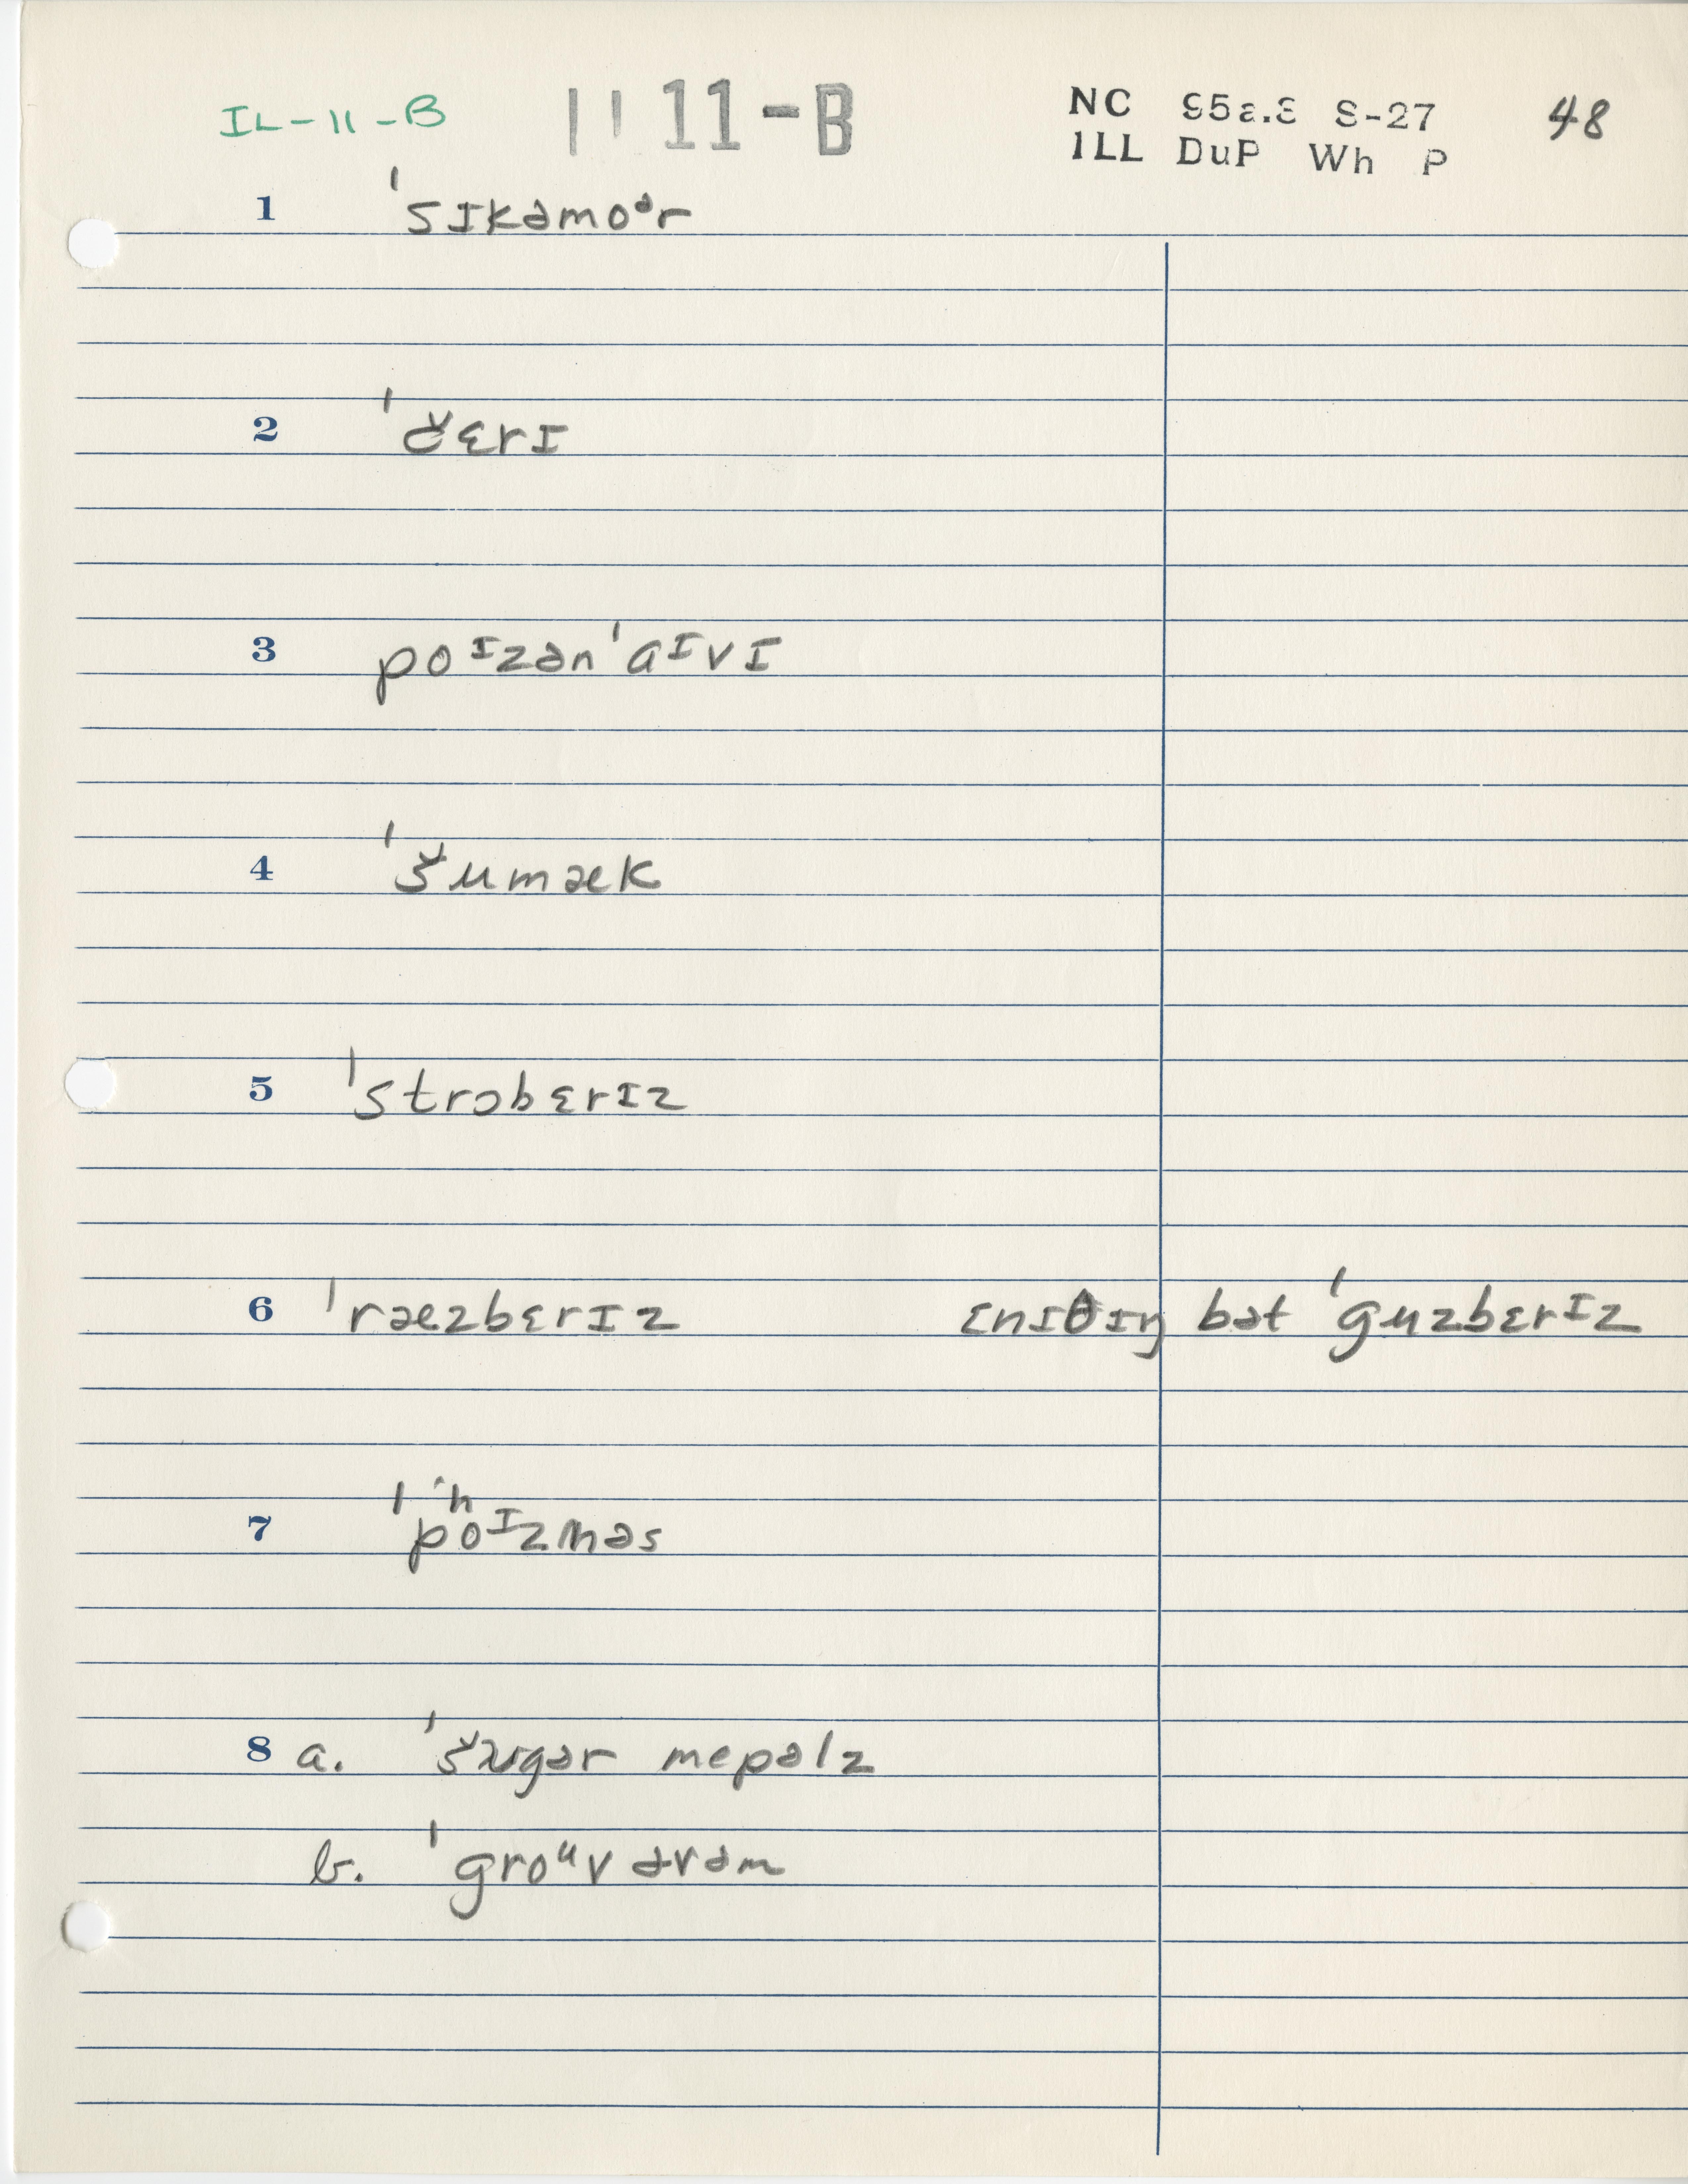 IL-11-B 11 11-B NC 95a.8 S-27 48
ILL DuP Wh P
1 ˈsɪkəmoᵊr
2 ˈčɛrɪ
3 poᶦzənˈaᶦvɪ
4 ˈšumæk
5 ˈstrobɛrɪz
6 ˈræzbɛrɪz ɛnɪθɪŋ bət ˈguzbɛrɪz
7 ˈpʰoᶦznəs
8 a. ˈšʊgər mepəlz
b. ˈgroᵘv əvəm